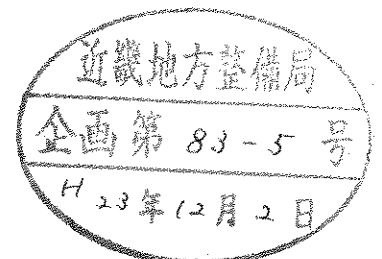 近畿地方整備局
企画第 83-5 号
H 23年12月2日